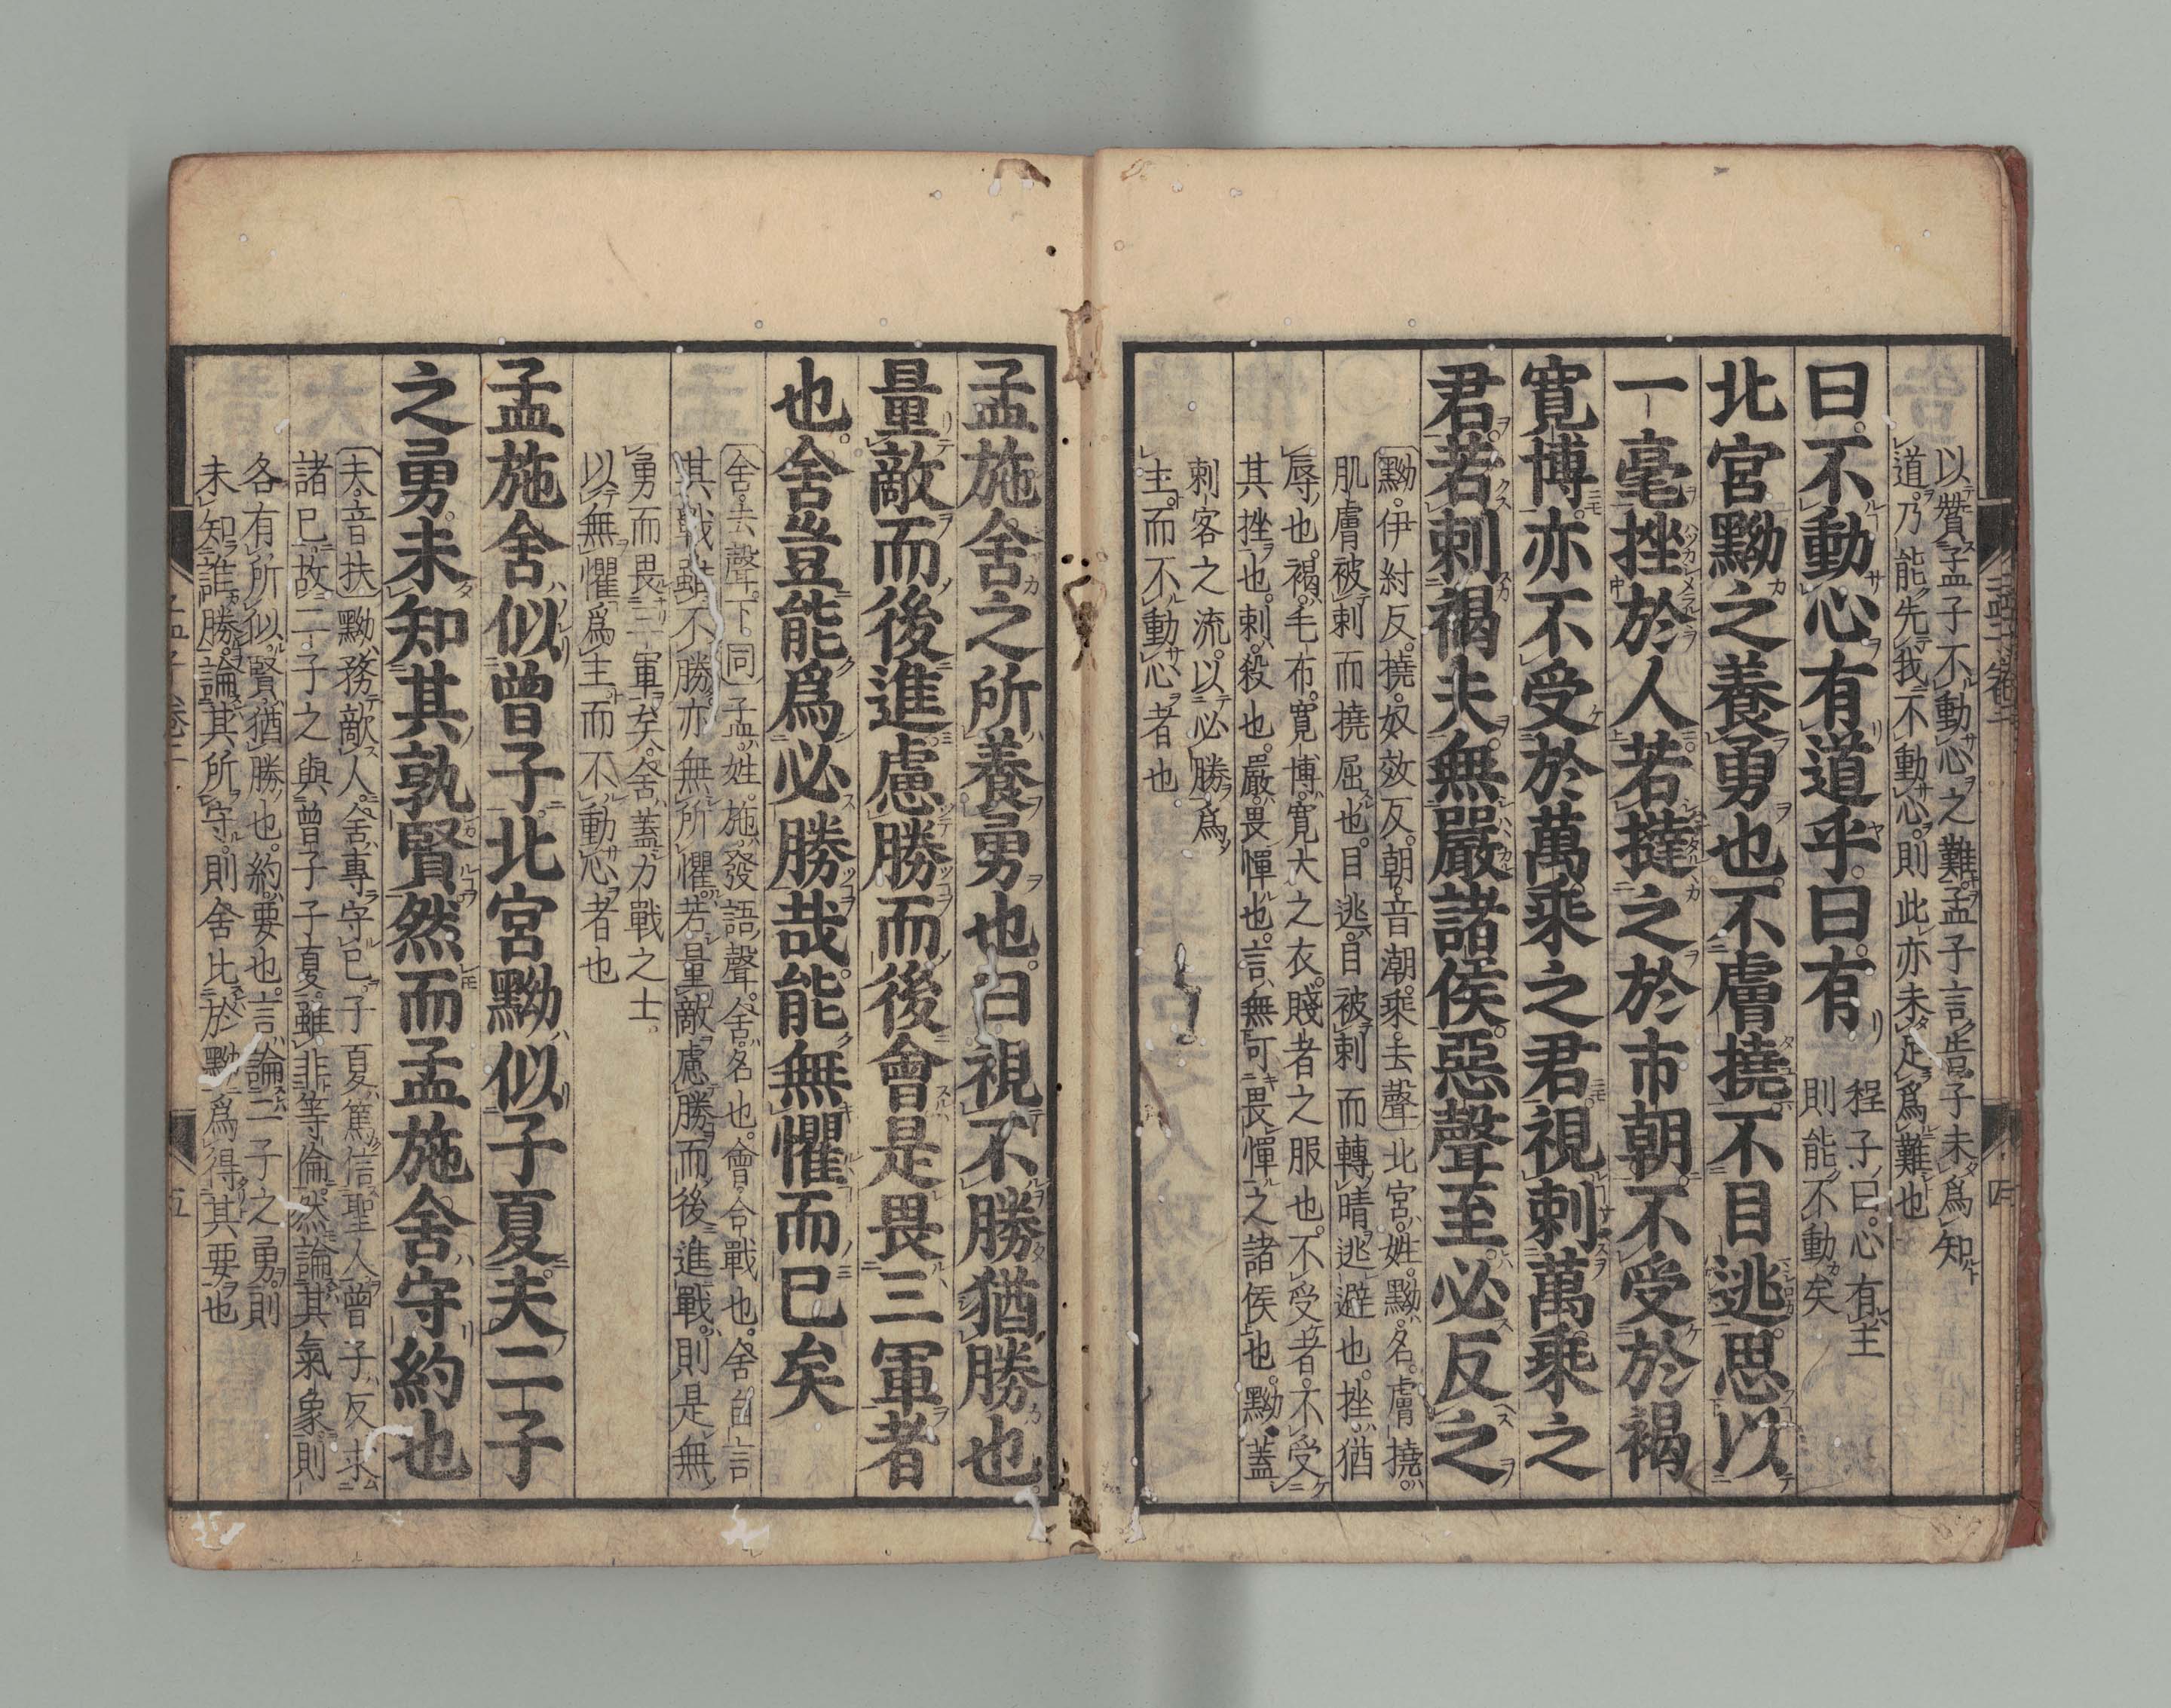 以贊孟子不動心之難孟子言告子未爲知
道乃能先我不動心則此亦未足爲難也
曰不動心有道乎曰有
程子曰心有主
則能不動矣
北宮黝之養勇也不膚撓不目逃思以
一毫挫於人若撻之於市朝不受於褐
寬博亦不受於萬乘之君視刺萬乘之
君若刺褐夫無嚴諸侯惡聲至必反之
黝伊糾反撓奴效反朝音潮乘去聲北宮姓黝名膚撓
肌膚被刺而撓屈也目逃目被刺而轉睛逃避也挫猶
辱也褐毛布寬博寬大之衣賤者之服也不受者不受
其挫也刺殺也嚴畏憚也言無可畏憚之諸侯也黝蓋
刺客之流以必勝爲
主而不動心者也
孟施舍之所養勇也曰視不勝猶勝也
量敵而後進慮勝而後會是畏三軍者
也舍豈能爲必勝哉能無懼而已矣
舍去聲下同孟姓施發語聲舍名也會合戰也舍自言
其戰雖不勝亦無所懼若量敵慮勝而後進戰則是無
勇而畏三軍矣舍蓋力戰之士
以無懼爲主而不動心者也
孟施舍似曾子北宮黝似子夏夫二子
之勇未知其孰賢然而孟施舍守約也
夫音扶黝務敵人舍專守已子夏篤信聖人曾子反求
諸已故二子之與曾子子夏雖非等倫然論其氣象則
各有所似賢猶勝也約要也言論二子之勇則
未知誰勝論其所守則舍比於黝爲得其要也
孟子卷二
四
孟子卷二
五